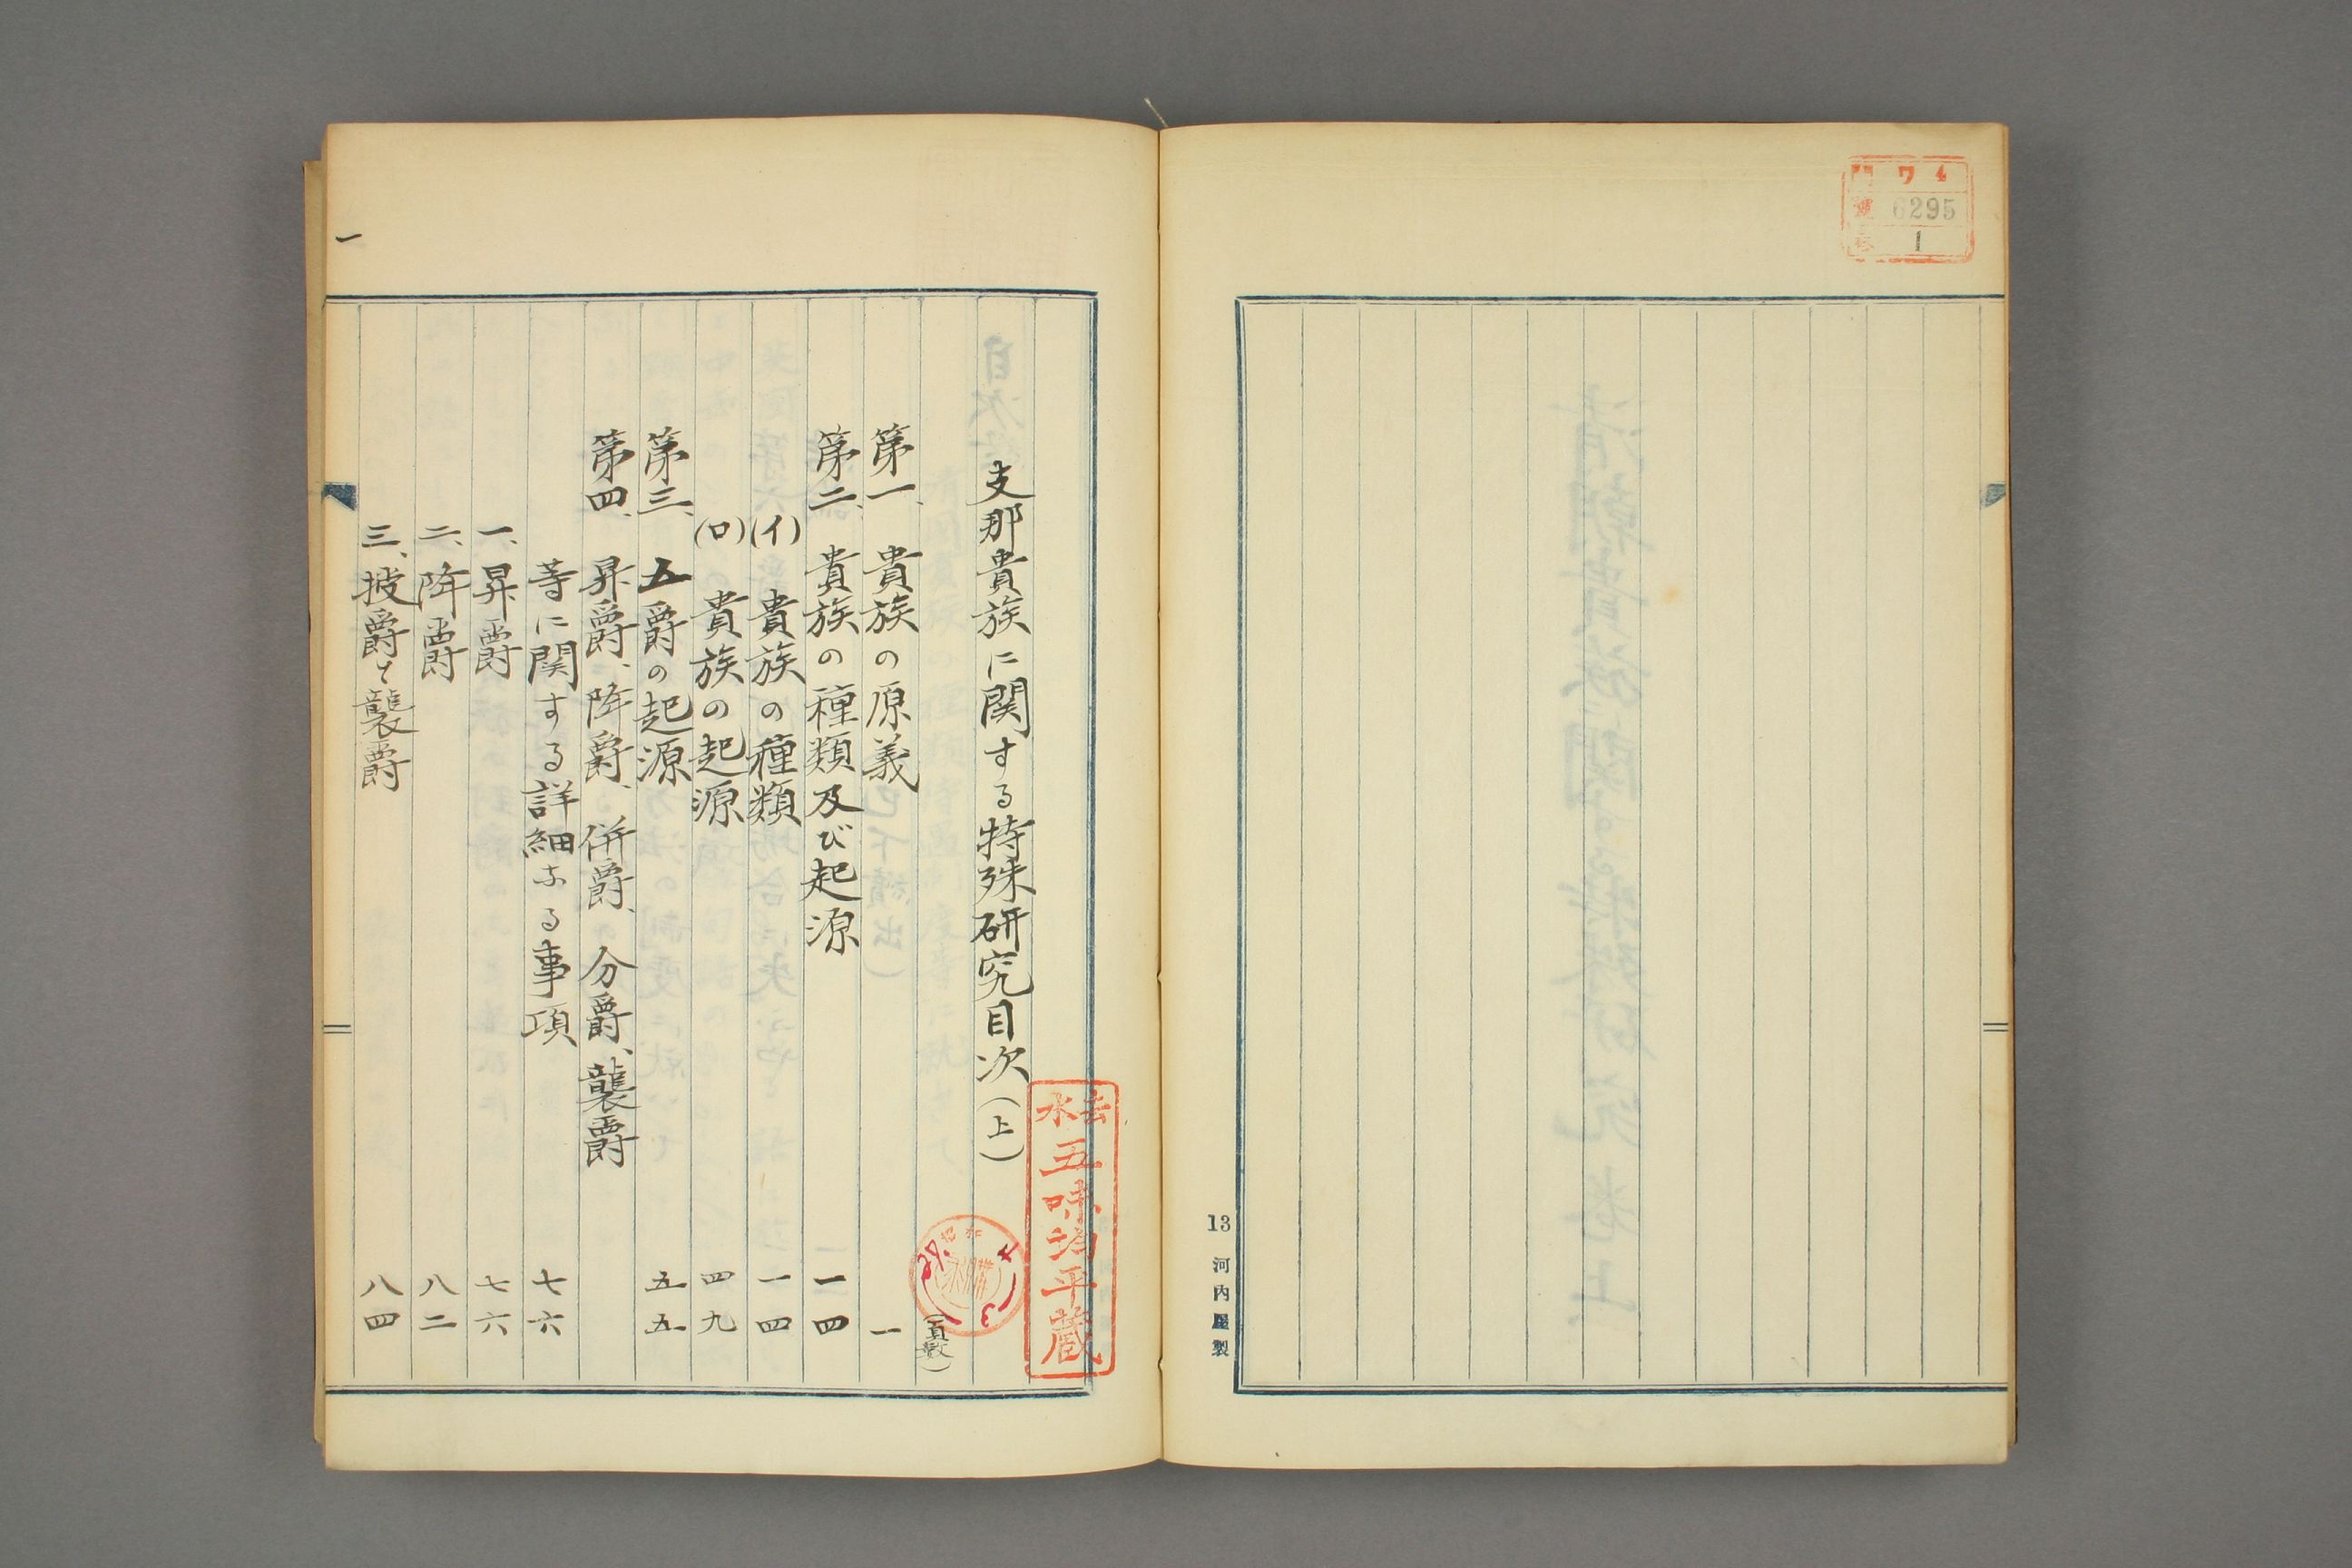 イ
ワ
門
6295
號
1
卷
13
河内屋製
支那貴族に関する特殊研究目次(上)
去水
五味均平蔵
(頁数)
第一、貴族の原義 一
第二、貴族の種類及び起源 一四
(イ)貴族の種類 一四
(ロ)貴族の起源 四九
第三、五爵の起源 五五
第四、昇爵、降爵、併爵、分爵、襲爵
等に関する詳細なる事項 七六
一、昇爵 七六
二、降爵 八二
三、披爵と襲爵 八四
一